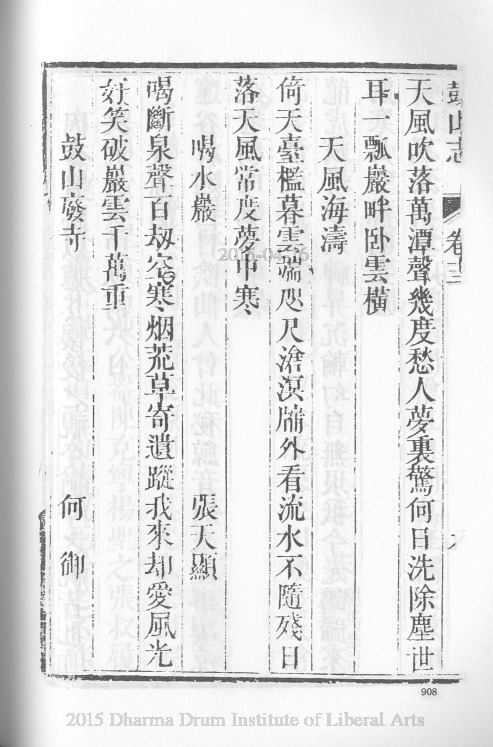 鼓山志 卷十三
天風吹落萬潭聲幾度愁人夢裏驚何日洗除塵世
耳一瓢巖畔卧雲橫
天風海濤
倚天臺檻暮雲端咫尺滄溟牖外看流水不隨殘日
落天風常度夢中寒
喝水巖 張天顯
喝斷泉聲百刼寒烟荒草寄遺蹤我來却愛風光
好笑破巖雲千萬重
鼓山廢寺 何御
908
2015 Dharma Drum Institute of Liberal Arts